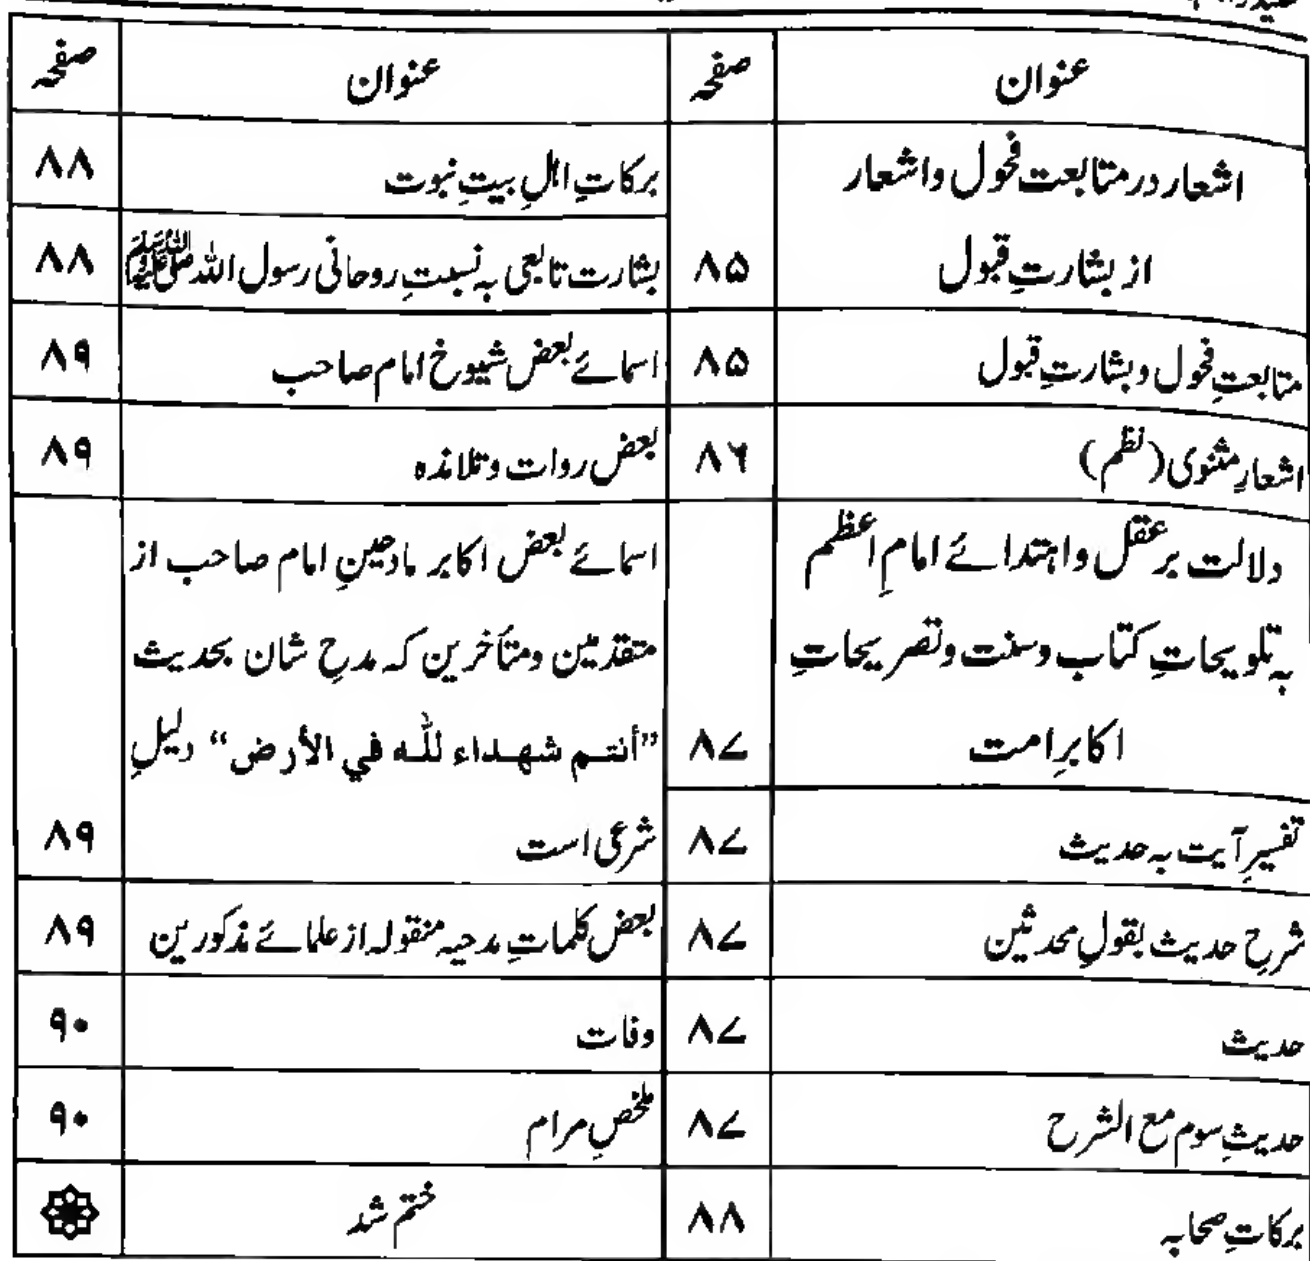 عنوان صفحہ
اشعار در متابعت فحول واشعار
از بشارتِ قبول ۸۵
متابعتِ فحول و بشارتِ قبول ۸۵
اشعارِ مثنوی (نظم) ۸۶
دلالت بر عقل واہتدائے امامِ اعظم
بہ تلویحاتِ کتاب وسنت وتصریحاتِ
اکابرِ امت ۸۷
تفسیرِ آیت بہ حدیث ۸۷
شرحِ حدیث بقولِ محدثین ۸۷
حدیث ۸۷
حدیثِ سوم مع الشرح ۸۷
برکاتِ صحابہ ۸۸
عنوان صفحہ
برکاتِ اہلِ بیتِ نبوت ۸۸
بشارت تابعی بہ نسبتِ روحانی رسول اللہ ﷺ ۸۸
اسمائے بعض شیوخ امام صاحب ۸۹
بعض روات وتلامذہ ۸۹
اسمائے بعض اکابر مادحینِ امام صاحب از
متقدمین ومتأخرین کہ مدحِ شان بحدیث
”أنتم شهداء للّٰه في الأرض“ دلیلِ
شرعی است ۸۹
بعض کلماتِ مدحیہ منقولہ از علمائے مذکورین ۸۹
وفات ۹۰
ملخصِ مرام ۹۰
ختم شد